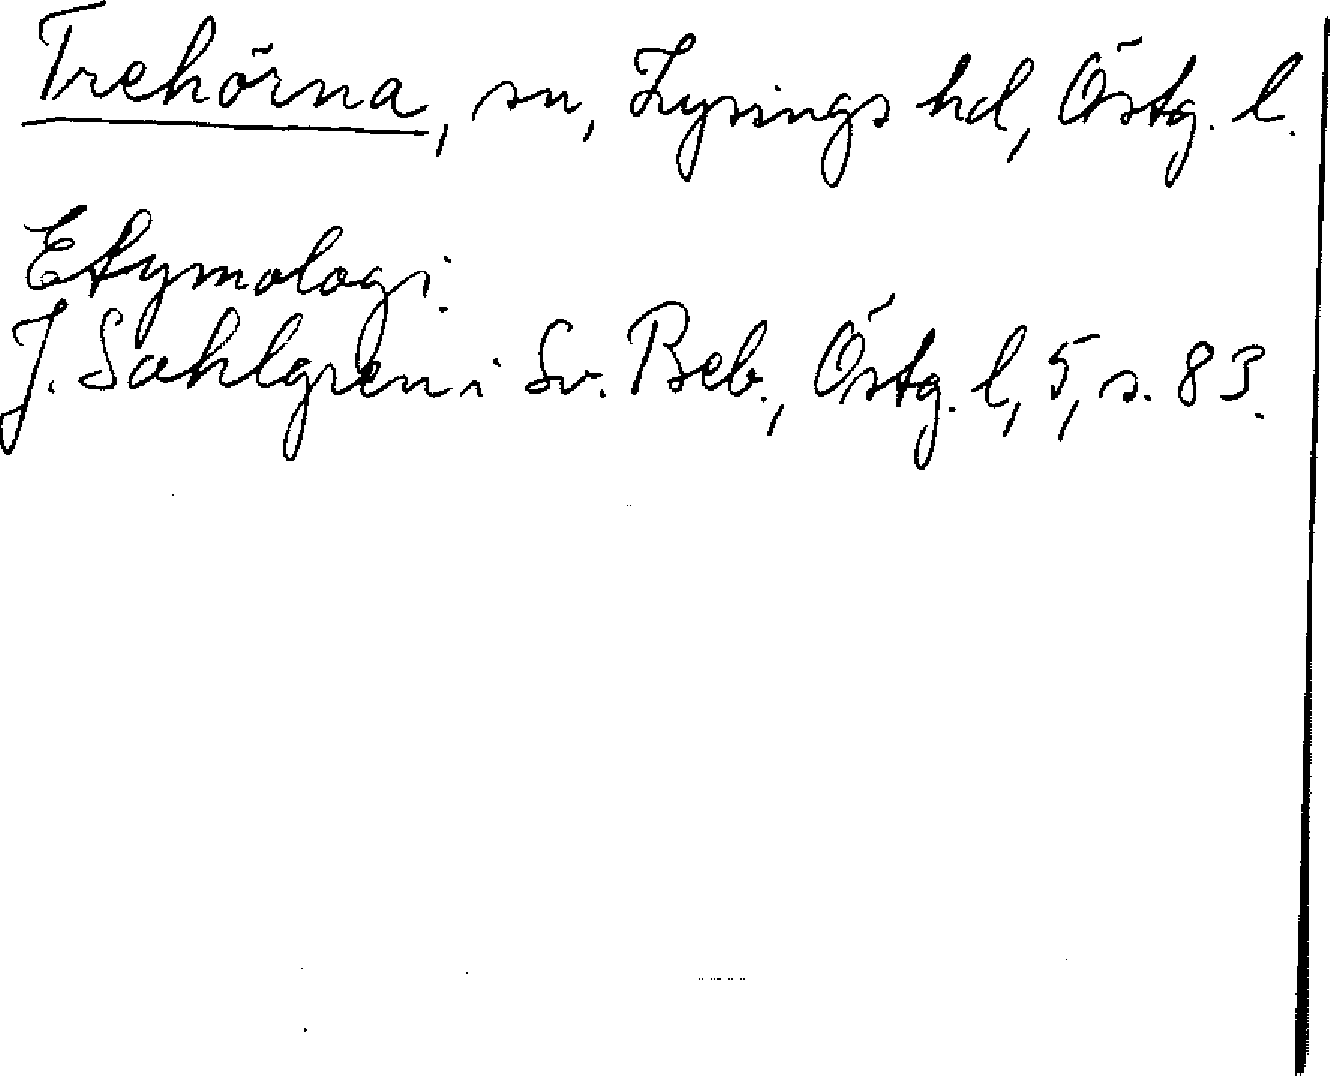 Trehörna, sn, Lysings hd, Östg. l.
Etymologi.
J. Sahlgren i Sv. Beb., Östg. l, 5, s. 83.